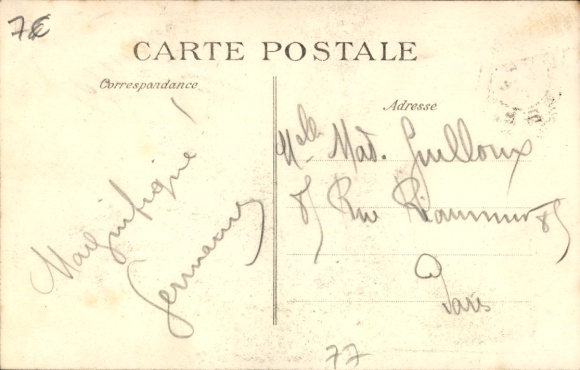 7€
CARTE POSTALE
Correspondance
Adresse
Magnifique !
Germaine
Melle Mad. Guilloux
85 Rue Réaumur 85
à
Paris
77